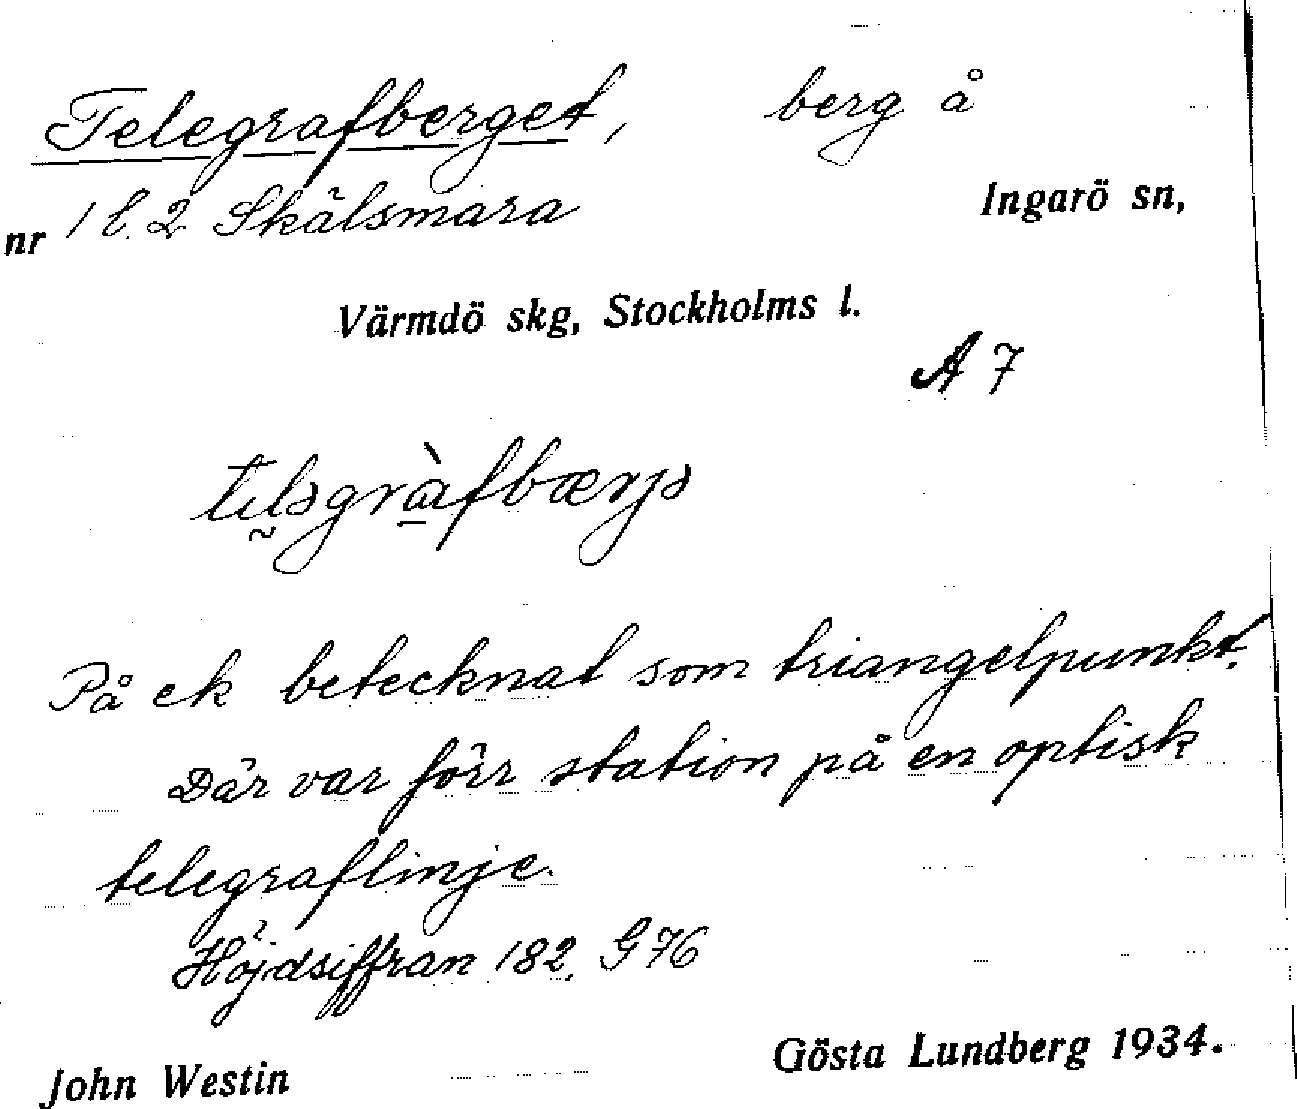 Telegrafberget, berg å
nr 1 l. 2 Skälsmara Ingarö sn,
Värmdö skg, Stockholms l.
A 7
På ek betecknat som triangelpunkt.
Där var förr station på en optisk
telegraflinje.
Höjdsiffran 182. G 76
John Westin Gösta Lundberg 1934.